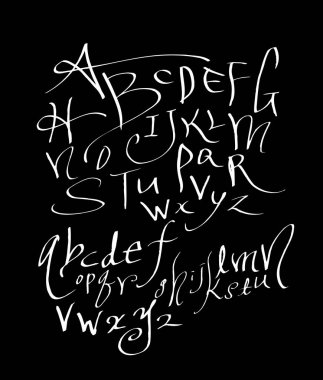 ABCDEFG
HIJKLM
NOPQR
STUVR
WXYZ
abcdef
opqrghijlmn
kstu
vwxyz